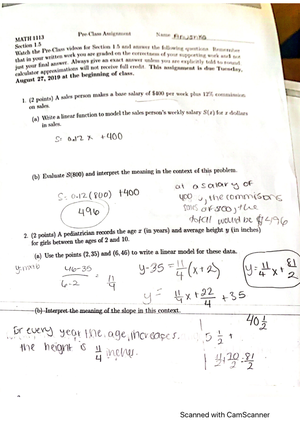 MATH 1113
Pre-Class Assignment
Name
Section 1.5
Watch the Pre-Class videos for Section 1.5 and answer the following questions. Remember
that in your written work you are graded on the correctness of your supporting work and not
just your final answer. Always give an exact answer unless you are explicitly told to round;
calculator approximations will not receive full credit. This assignment is due Tuesday,
August 27, 2019 at the beginning of class.
1. (2 points) A sales person makes a base salary of $400 per week plus 12% commission
on sales.
(a) Write a linear function to model the sales person's weekly salary S(x) for x dollars
in sales.
S= 0.12 x +400
(b) Evaluate S(800) and interpret the meaning in the context of this problem.
S= 0.12 (800) +400
496
at a salary of
the commissions
total would be $496
2. (2 points) A pediatrician records the age x (in years) and average height y (in inches)
for girls between the ages of 2 and 10.
(a) Use the points (2,35) and (6,46) to write a linear model for these data.
46-35
6-2
= 11/4
y-35 = 11/4 (x+2)
y= 11/4 x+ 81/2
y= 11/4 x + 22/4 +35
(b) Interpret the meaning of the slope in this context.
For every year the age increases,
the height is 11/4 inches.
40 1/2
5 1/2
Scanned with CamScanner